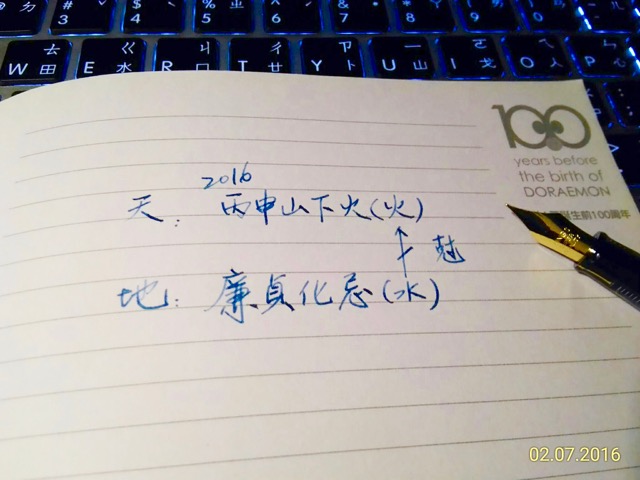 # $ % ^ & * ( )
3 4 5 6 7 8 9 0
ㄊ ㄍ ㄐ ㄔ ㄗ ㄧ ㄛ ㄟ ㄣ
W 田 E 水 R 口 T 廿 Y 卜 U 山 I 戈 O 人 P 心
100
years before
the birth of
DORAEMON
生前100周年
2016
天: 丙申山下火(火)
剋
地: 廉貞化忌(水)
02.07.2016